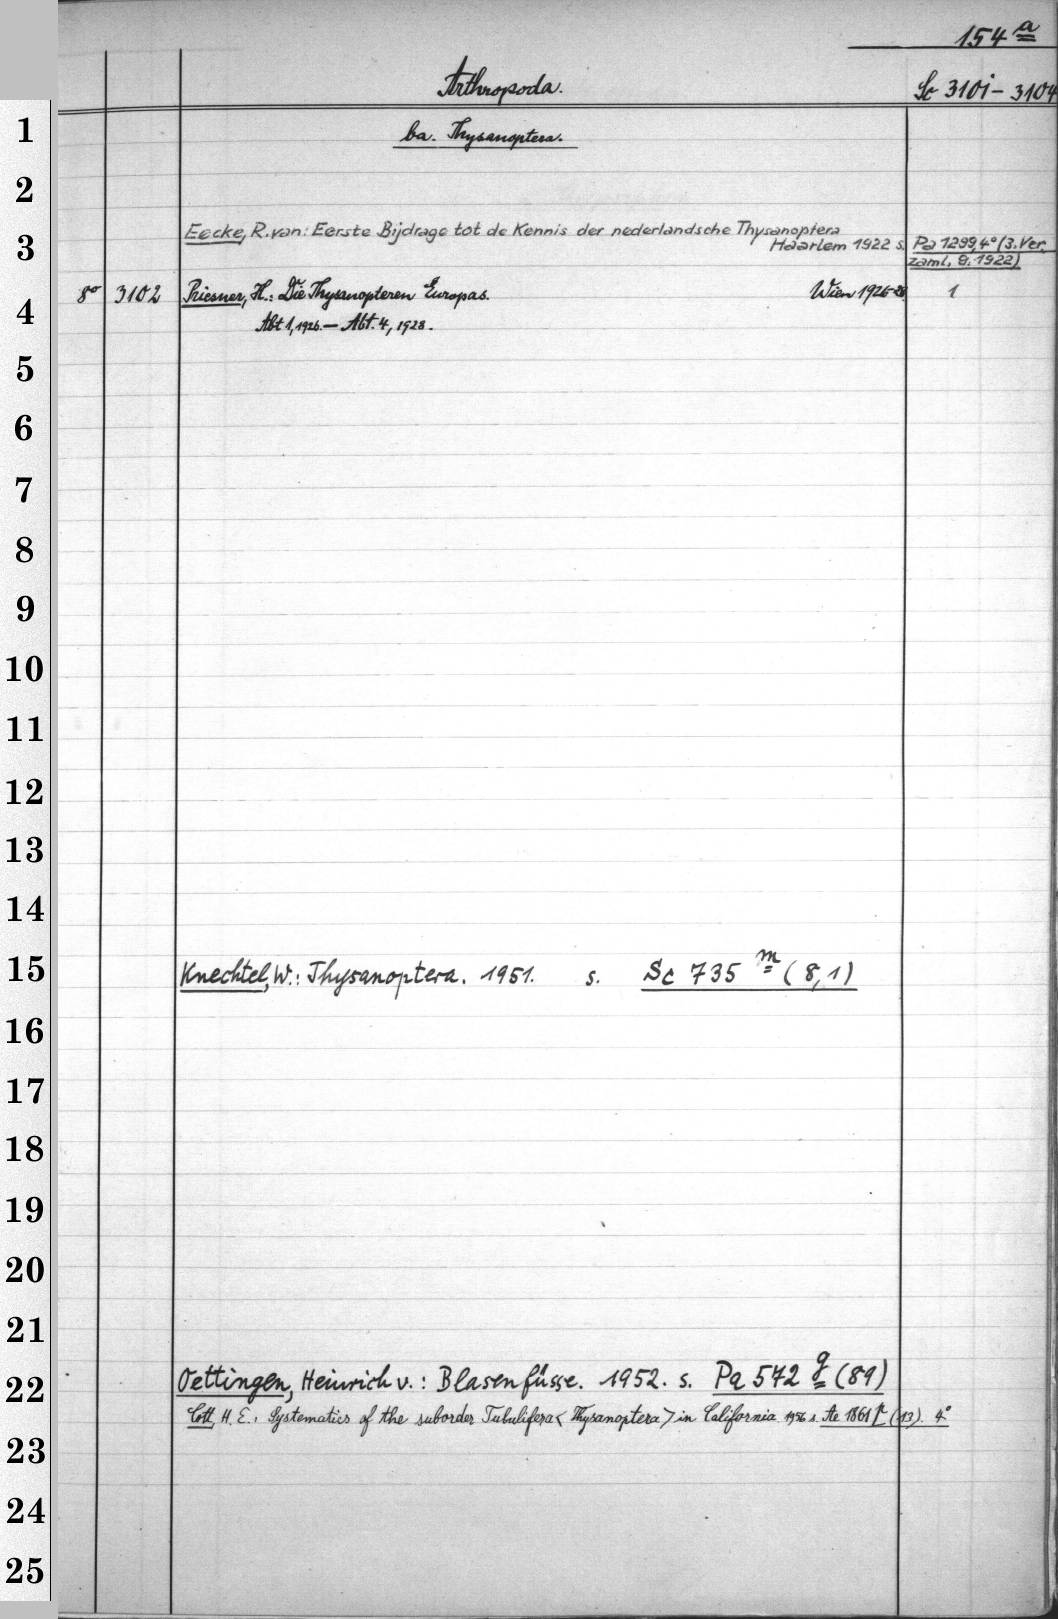 154 a
Arthropoda.
Sc 3101 - 3104
1
ba. Thysanoptera.
2
Eecke, R. van: Eerste Bijdrage tot de Kennis der nederlandsche Thysanoptera
3
Haarlem 1922 s. Pa 1299, 4° (3. Ver.
zaml. 9. 1922)
8° 3102 Priesner, H.: Die Thysanopteren Europas. Wien 1926-28 1
4
Abt 1, 1926. — Abt. 4, 1928.
5
6
7
8
9
10
11
12
13
14
15
Knechtel, W.: Thysanoptera. 1951. s. Sc 735 m (8,1)
16
17
18
19
20
21
22
Oettingen, Heinrich v.: Blasenfüsse. 1952. s. Pa 572 g (89)
Cott, H. E.: Systematics of the suborder Tubulifera < Thysanoptera > in California 1956 s. Ae 1861 (13). 4°
23
24
25